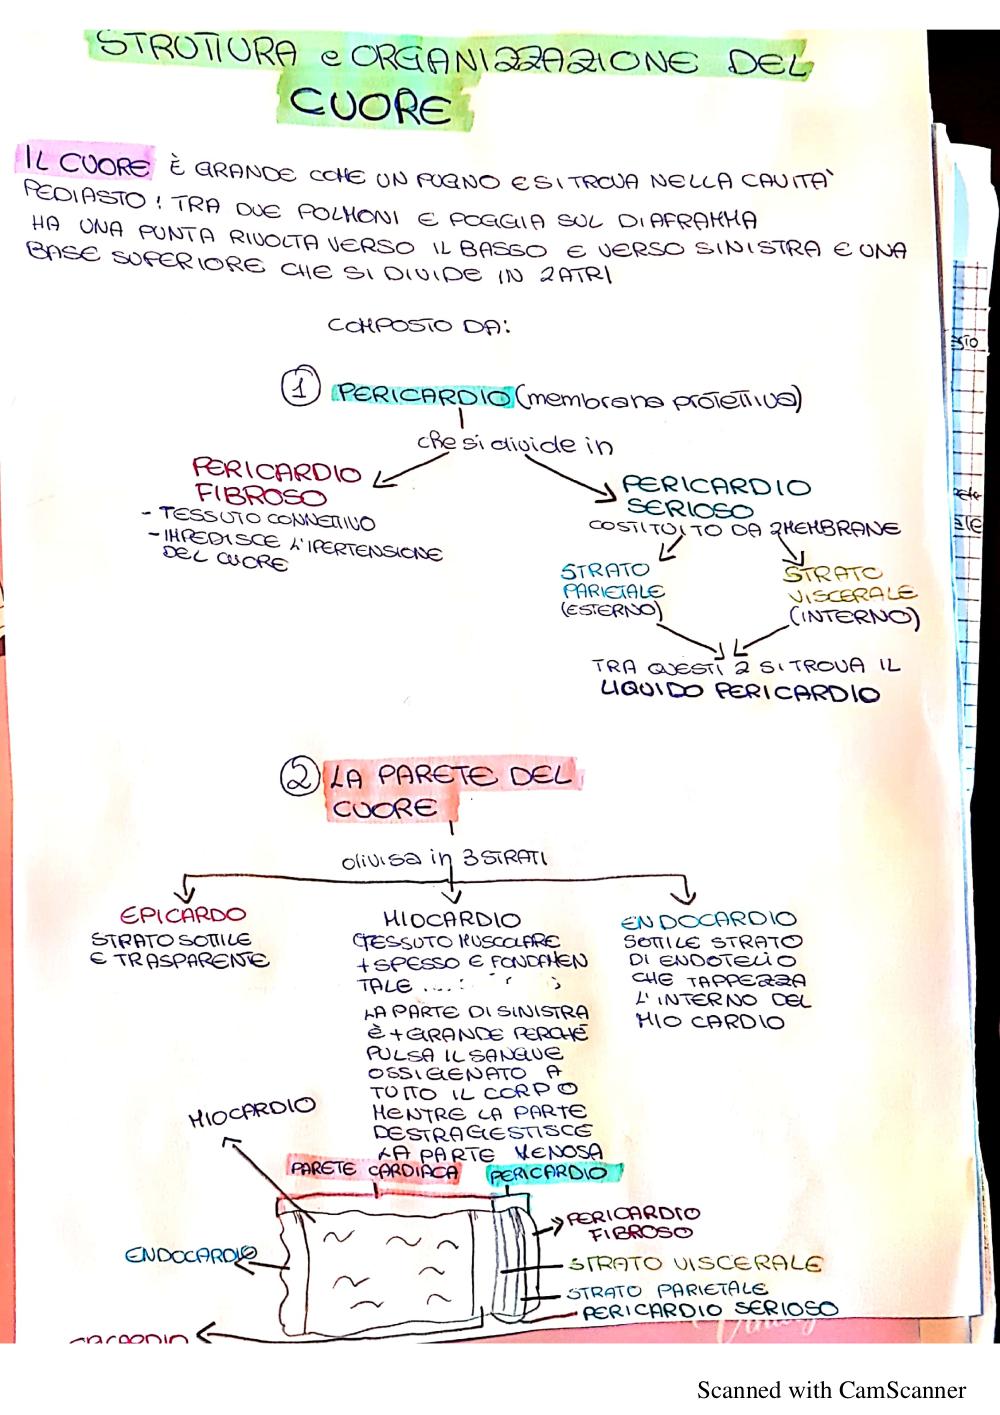 STRUTTURA e ORGANIZZAZIONE DEL
CUORE
IL CUORE È GRANDE COME UN PUGNO E SI TROVA NELLA CAVITA'
PEDIASTO: TRA DUE POLMONI E POGGIA SUL DIAFRAMMA
HA UNA PUNTA RIVOLTA VERSO IL BASSO E VERSO SINISTRA E UNA
BASE SUPERIORE CHE SI DIVIDE IN 2 ATRI
COMPOSTO DA:
1 PERICARDIO (membrana protettiva)
che si divide in
PERICARDIO
FIBROSO
- TESSUTO CONNETTIVO
- IMPEDISCE L'IPERTENSIONE
DEL CUORE
PERICARDIO
SERIOSO
COSTITUITO DA 2 MEMBRANE
STRATO
PARIETALE
(ESTERNO)
STRATO
VISCERALE
(INTERNO)
TRA QUESTI 2 SI TROVA IL
LIQUIDO PERICARDIO
2 LA PARETE DEL
CUORE
divisa in 3 STRATI
EPICARDO
STRATO SOTTILE
E TRASPARENTE
MIOCARDIO
TESSUTO MUSCOLARE
+ SPESSO E FONDAMEN
TALE
LA PARTE DI SINISTRA
È + GRANDE PERCHÉ
PULSA IL SANGUE
OSSIGENATO A
TUTTO IL CORPO
MENTRE LA PARTE
DESTRA GESTISCE
LA PARTE VENOSA
ENDOCARDIO
SOTTILE STRATO
DI ENDOTELIO
CHE TAPPEZZA
L'INTERNO DEL
MIO CARDIO
MIOCARDIO
PARETE CARDIACA
PERICARDIO
PERICARDIO
FIBROSO
ENDOCARDIO
STRATO VISCERALE
STRATO PARIETALE
PERICARDIO SERIOSO
Scanned with CamScanner